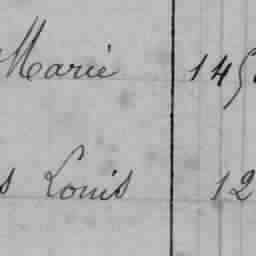 Marie 145
s Louis 12